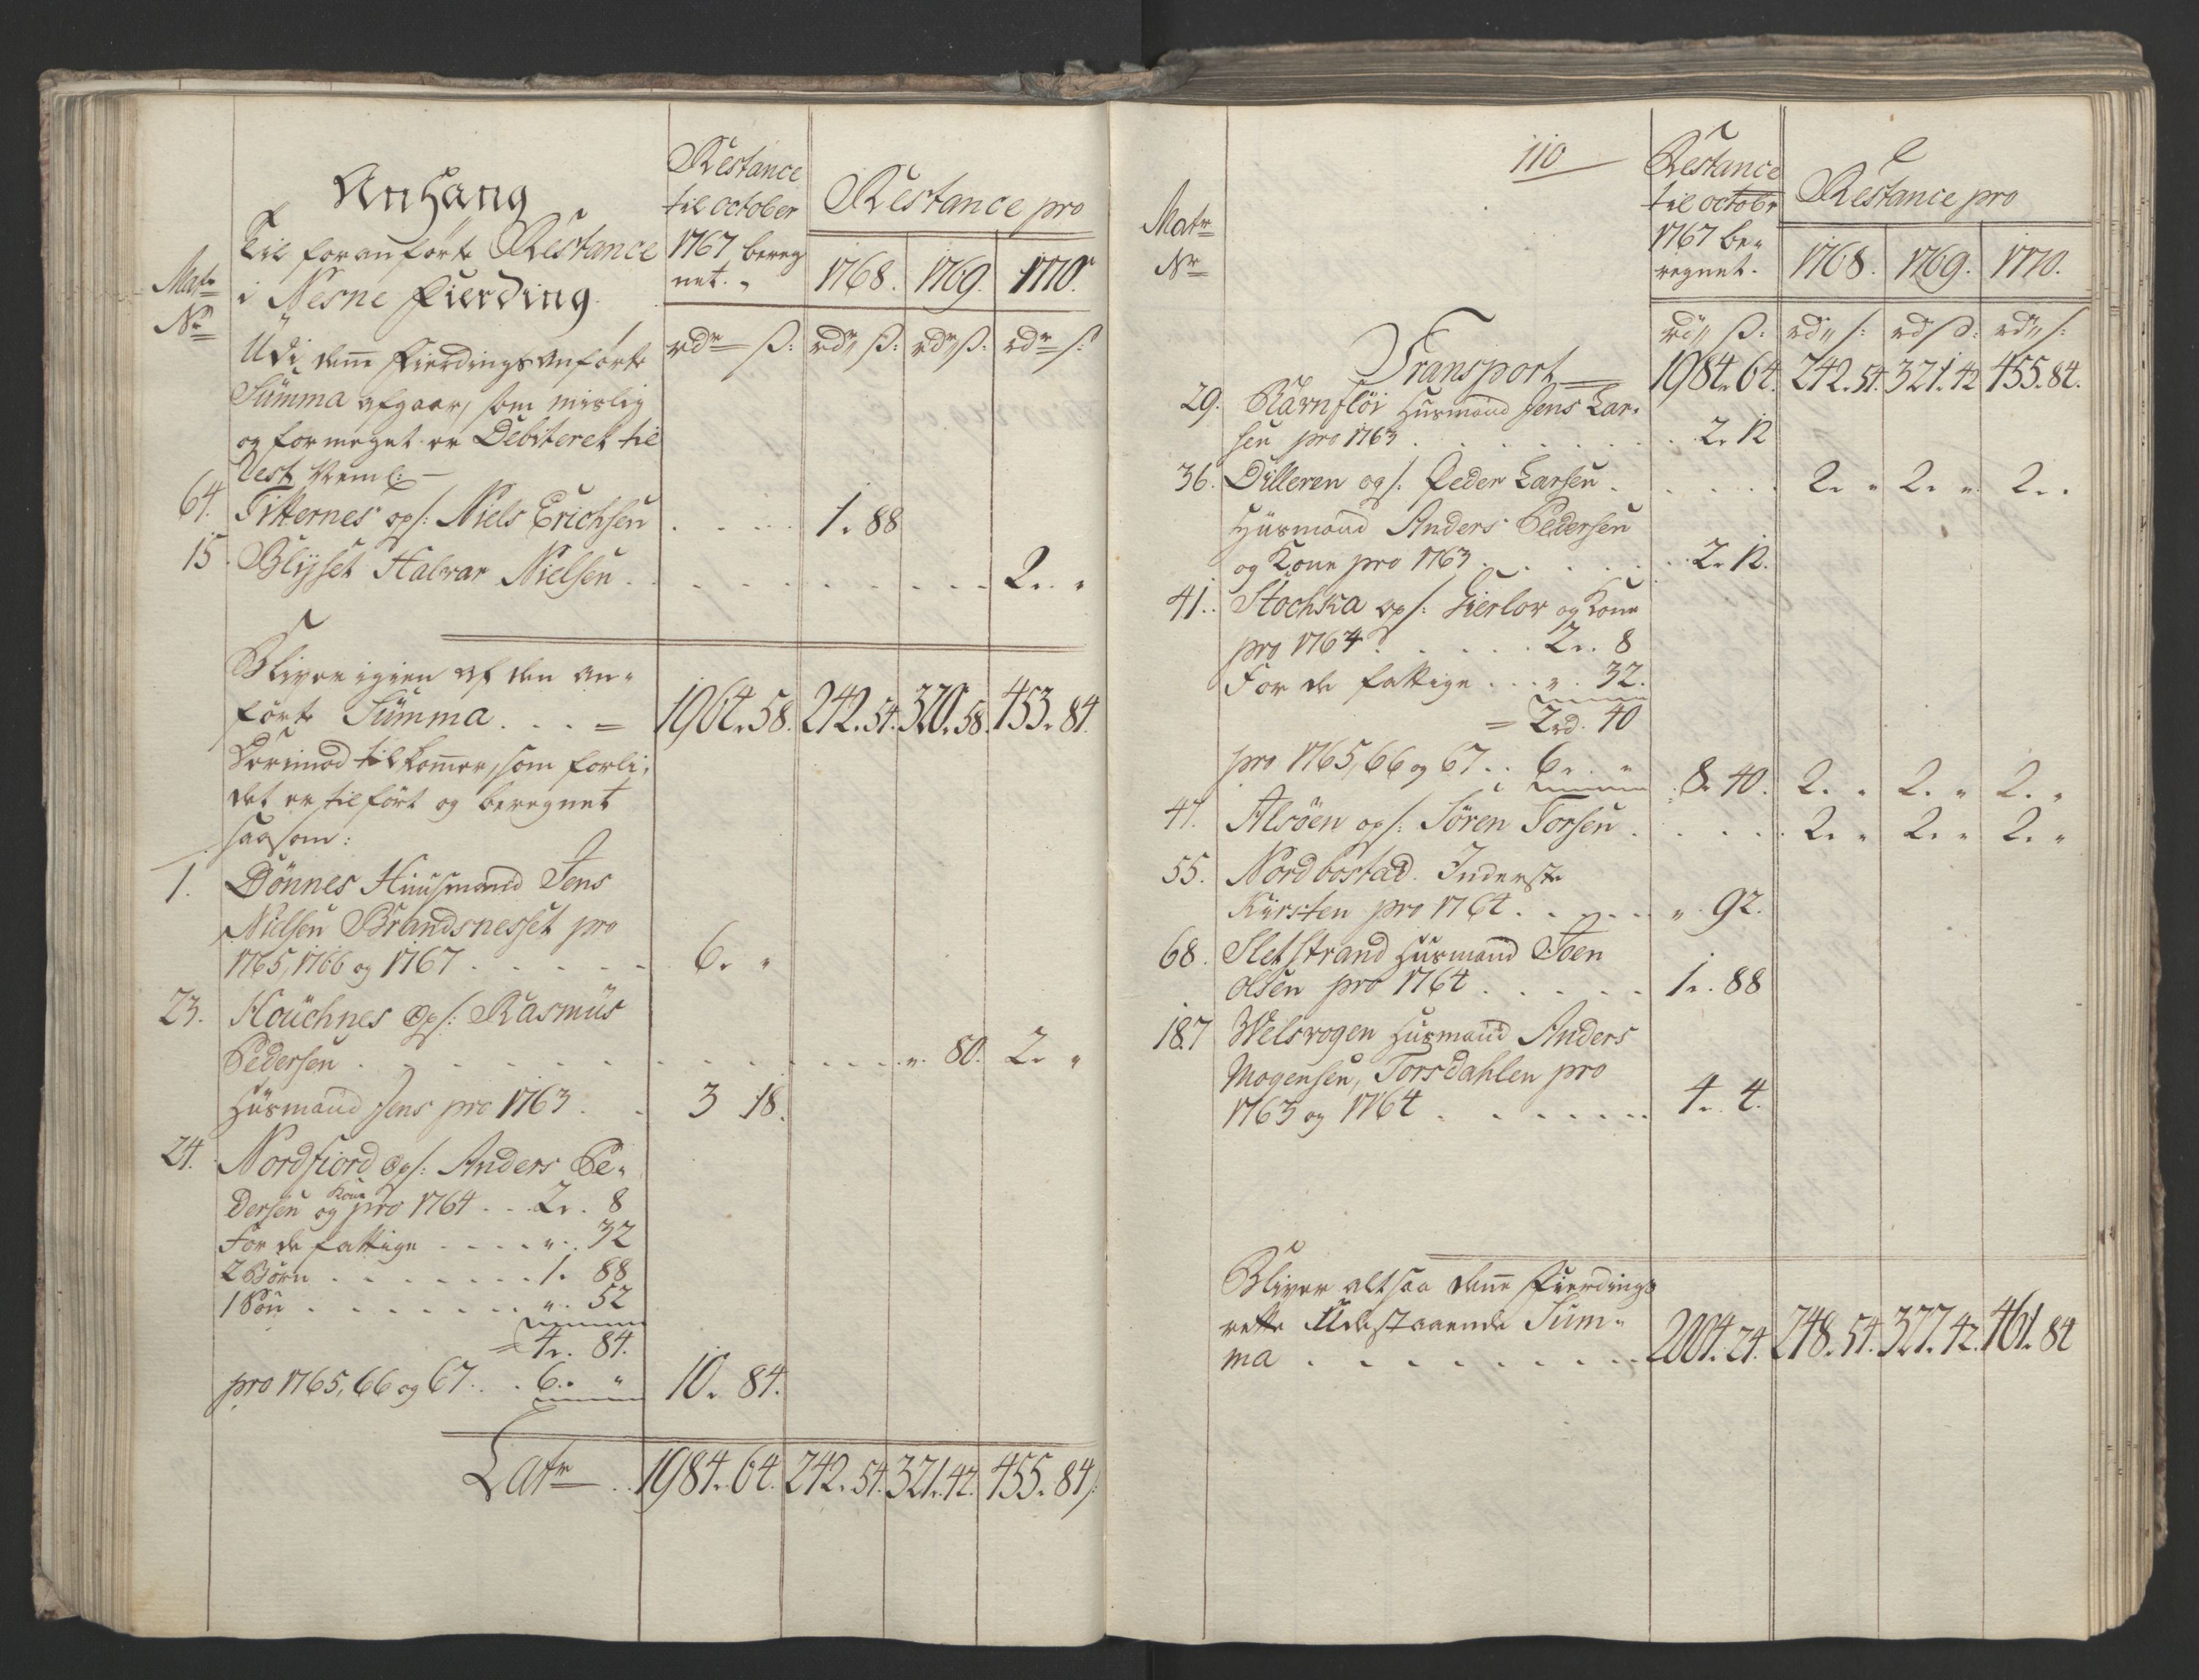 Anhang
Til foranförte Restance
i Nesne Fierding
Matr
No
Restance
til october
1767 bereg
net.
Restance pro
1768. 1769. 1770.
rdr ß: rdr ß: rdr ß: rdr ß:
Udi denne Fierdings anförte
Summa afgaar, som mislig
og formeget er Debiteret til
Rest Neml:
64. Fitternes ops: Niels Erichsen . . . . 1. 88
15. Blijset Halvar Nielsen . . . . . . . . 2. "
Bliver igien af den an-
förte Summa . . . = 1964. 58. 242. 54. 320. 58. 453. 84.
Derimod tilkommer, som forli-
det er tilfört og beregnet
saasom:
1. Dönnes Huusmand Jens
Nielsen Brandsnesset pro
1765, 1766 og 1767 . . . . . 6. "
23. Houchnes Ops: Rasmus
Pedersen . . . . . . . . . . ". 80. 2. "
Huusmand Jens pro 1763 . . 3 18.
24. Nordfiord Ops: Anders Pe-
Kone
dersen og pro 1764 . . 2. 8
For de fattige . . . . ". 32
2 Börn . . . . . . . 1. 88
1 Sön . . . . . . . ". 52
= 4. 84.
pro 1765, 66 og 67 . . . 6. " 10. 84.
Latr . . 1984. 64. 242. 54. 321. 42. 455. 84.
110
Matr
Nr
Restance
til octobr
1767 be-
regnet.
Restance pro
1768. 1769. 1770.
rd ß: rd ß: rd ß: rd ß:
Transport 1984. 64. 242. 54. 321. 42 455. 84.
29. Ravnfløi Husmand Jens Lar-
sen pro 1763 . . . . . . . . 2. 12
36. Dilleren ops: Peder Larsen . . . . . 2. " 2. " 2. "
Husmand Anders Pedersen
og Kone pro 1763 . . . . . . 2. 12.
41. Stochka ops: Gierlov og Kone
pro 1764 . . . . . . 2. 8
For de fattige . . . ". 32.
= 2 rd. 40
pro 1765, 66 og 67 . . 6. " 8. 40. 2. " 2. " 2. "
47. Alsöen ops: Sören Torsen . . . . . 2. " 2. " 2. "
55. Nordbostad. Inderste
Kirsten pro 1764 . . . . . . ". 92.
68. Sletstrand Husmand Joen
Olsen pro 1764 . . . . . 1. 88
187 Welsvogen Husmand Anders
Mogensen, Torsdahlen pro
1763 og 1764 . . . . . . . 4. 4.
Bliver altsaa denne Fierdings
rette Udestaaende Sum-
ma . . . . . . . . . 2004. 24. 248. 54. 327. 42. 461. 84